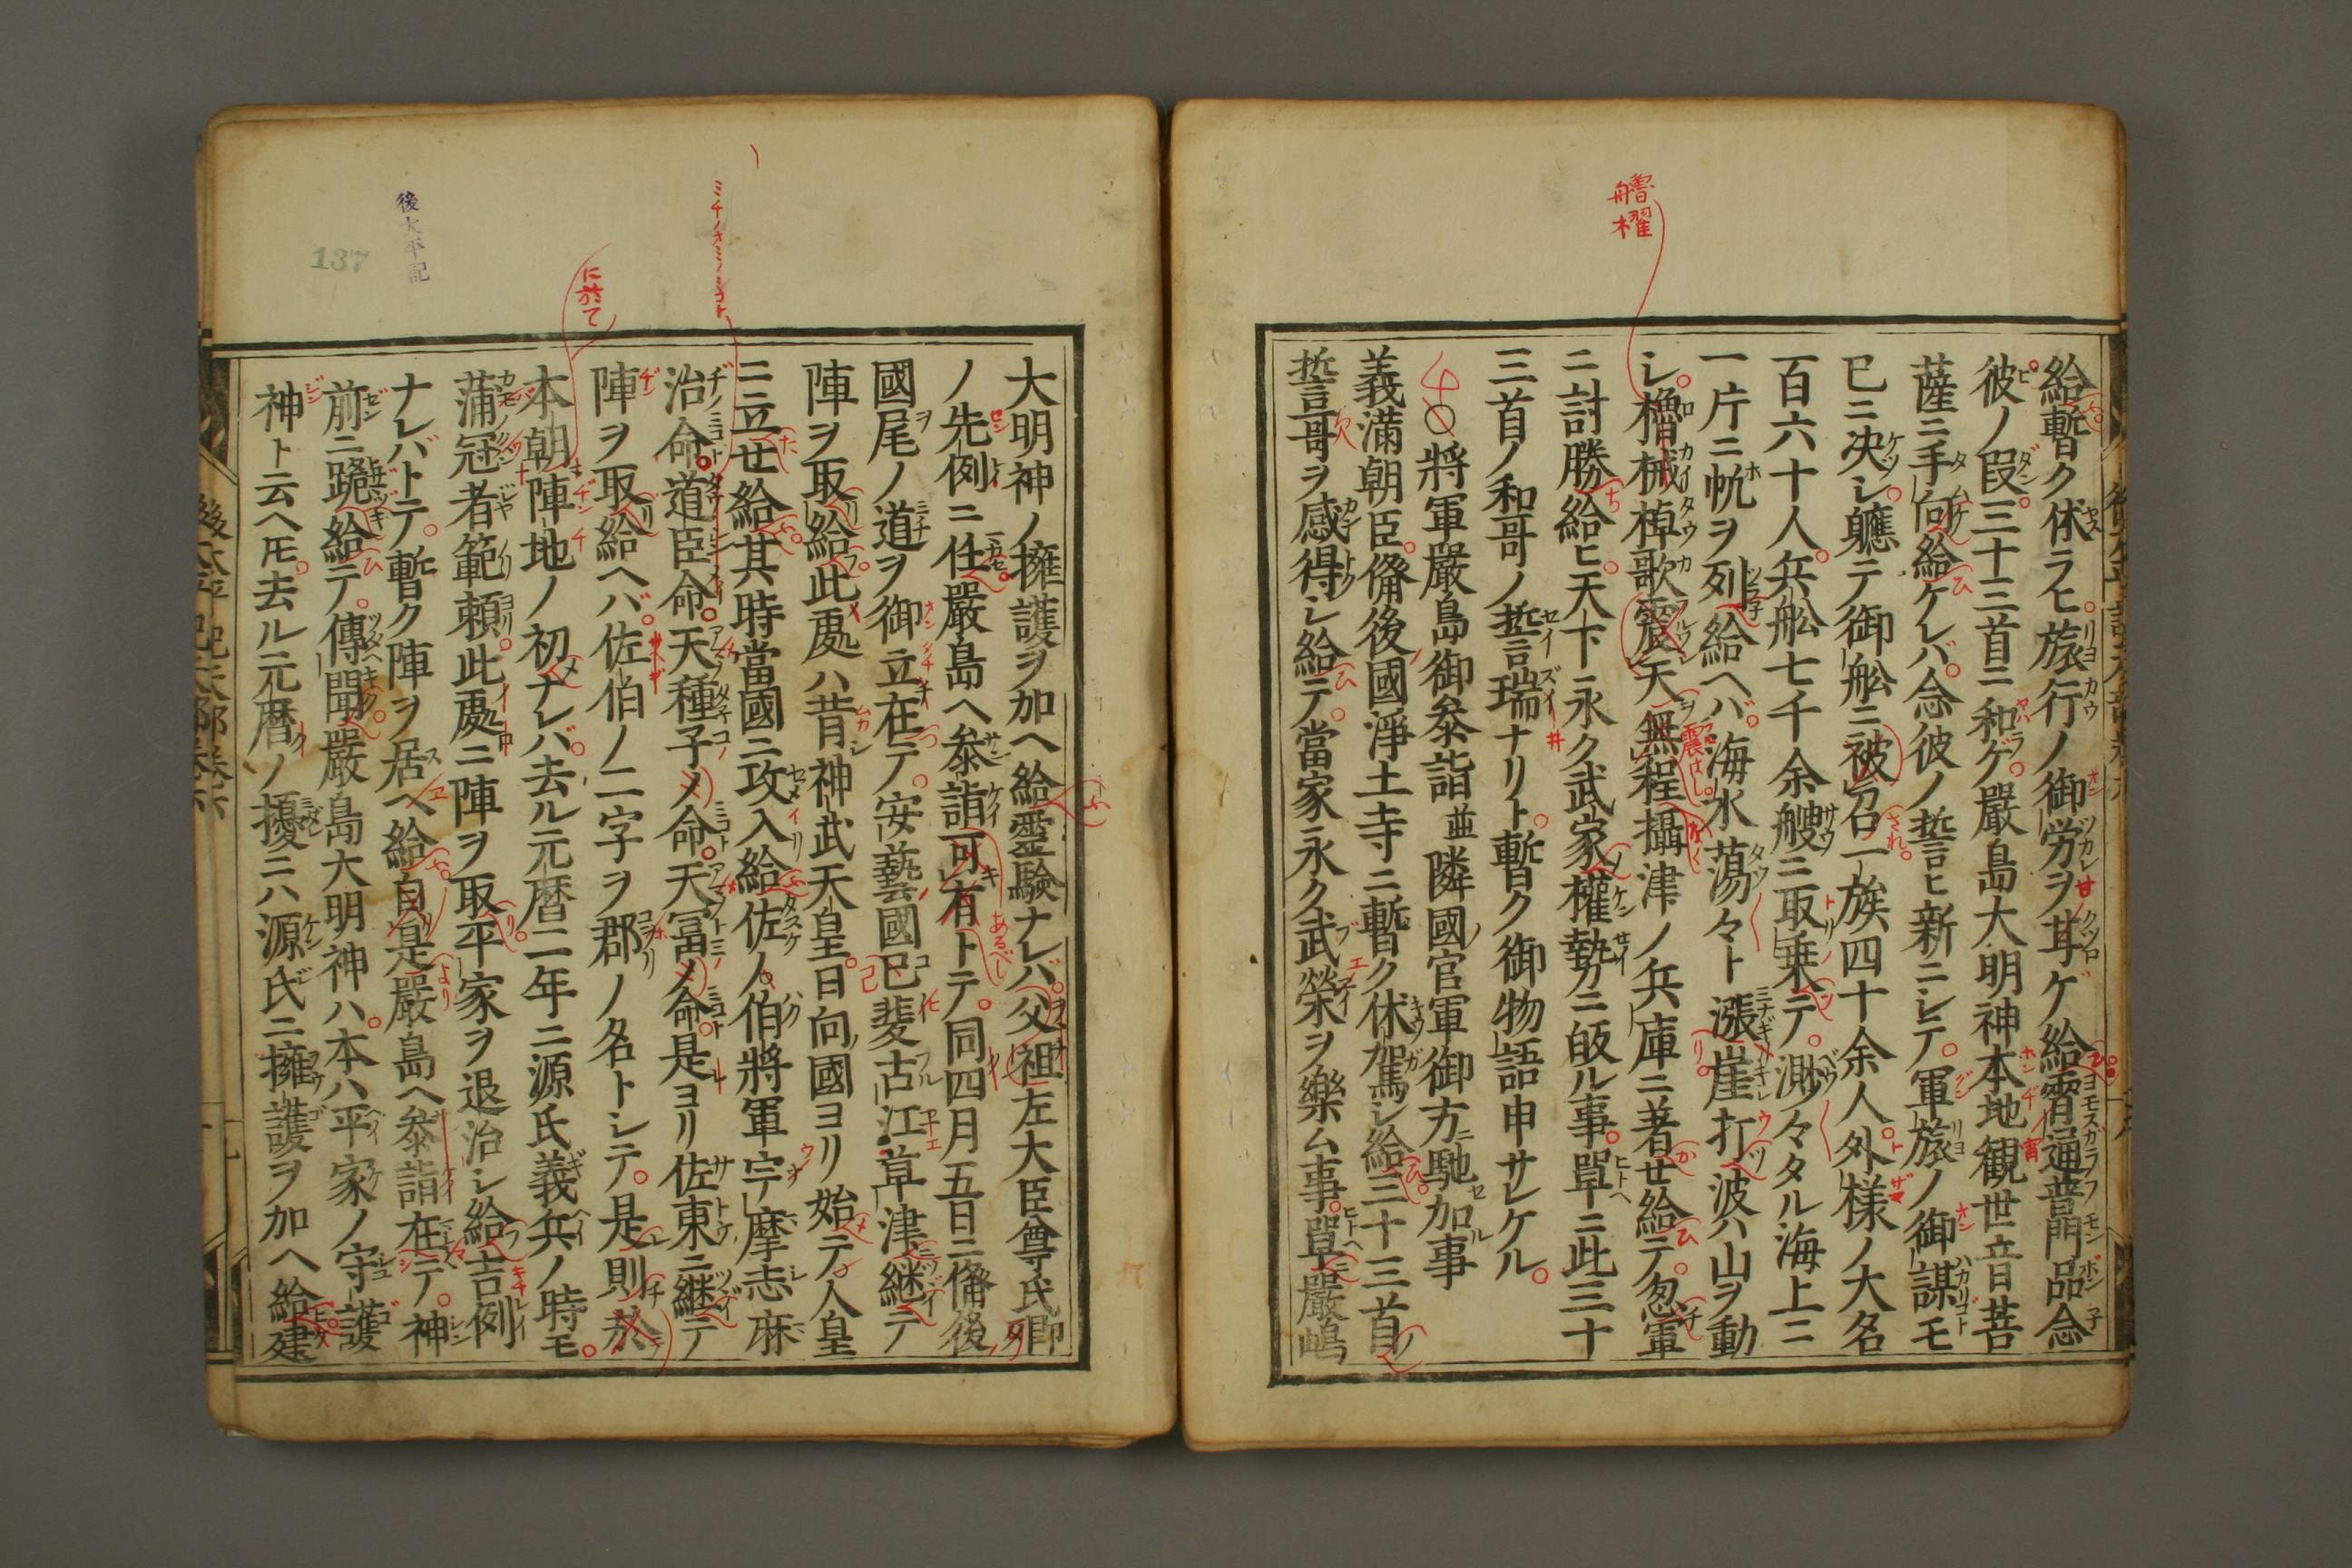 艪櫂
給暫ク休ラヒ旅行ノ御労ヲ耳ゲ給霄通普門品念
彼ノ段三十三首ニ和ゲ嚴島大明神本地観世音菩
薩ニ手向給ケレバ念彼ノ誓ヒ新ニシテ軍旅ノ御謀モ
已ニ决シ軈テ御舩ニ被召一族四十余人外様ノ大名
百六十人兵舩七千余艘ニ取乗テ渺々タル海上ニ
一片ニ帆ヲ列給ヘバ海水蕩々ト漲崖打波ハ山ヲ動
シ櫓械棹歌震天無程攝津ノ兵庫ニ著せ給テ忽軍
ニ討勝給ヒ天下永ク武家權勢ニ皈ル事單ニ此三十
三首ノ和哥ノ誓瑞ナリト暫ク御物語申サレケル
○將軍嚴島御參詣並隣國官軍御方ニ馳加事
義滿朝臣備後國淨土寺ニ暫ク休駕シ給三十三首
誓哥ヲ感得シ給テ當家永ク武榮ヲ樂ム事單嚴嶋
ミチノオミノミコト
に於て
後太平記
137
大明神ノ擁護ヲ加ヘ給霊驗ナレバ父祖左大臣尊氏卿
ノ先例ニ任嚴島ヘ參詣可有トテ同四月五日ニ備後
國尾ノ道ヲ御立在テ安藝國巳斐古江草津継テ
陣ヲ取給此處ハ昔神武天皇日向國ヨリ始テ人皇
ニ立せ給其時當國ニ攻入給佐人伯將軍宇摩志麻
治命道臣命天種子ノ命天冨ノ命是ヨリ佐東ニ継テ
陣ヲ取給ヘバ佐伯ノ二字ヲ郡ノ名トシテ是則於
本朝陣地ノ初ナレバ去ル元暦二年ニ源氏義兵ノ時モ
蒲冠者範頼此處ニ陣ヲ取平家ヲ退治シ給吉例
ナレバトテ暫ク陣ヲ居ヘ給自是嚴島ヘ參詣在テ神
前ニ跪給テ傳聞嚴島大明神ハ本ハ平家ノ守護
神ト云ヘ圧去ル元暦ノ擾ニハ源氏ニ擁護ヲ加ヘ給建